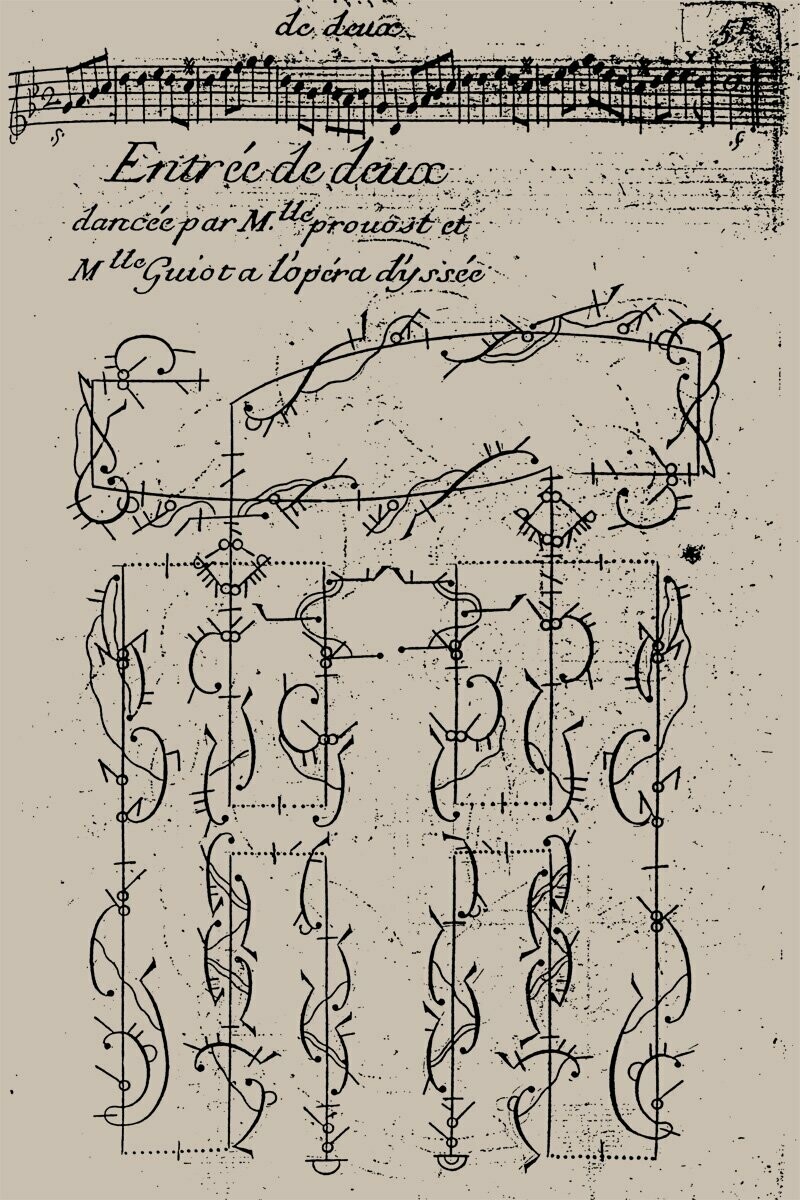 de deux
2
Entrée de deux
dancée par M.lle prouost et
Mlle Guiot a l'opéra d'yssée